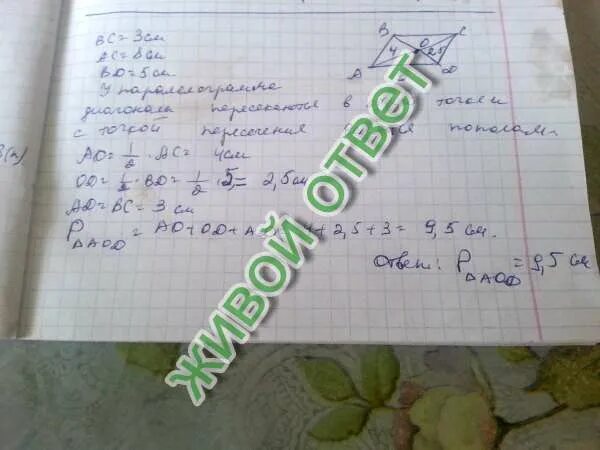 BC = 3 см
AC = 8 см
BD = 5 см
У параллелограмма
диагонали пересекаются в точке и
с точкой пересечения пополам.
AO = 1/2 · AC = 4 см
OD = 1/2 · BD = 1/2 · 5 = 2,5 см
AD = BC = 3 см
P ΔAOD = AO + OD + A + 2,5 + 3 = 9,5 см.
Ответ: P ΔAOD = 9,5 см
B
C
O
4
2,5
A
D
ЖИВОЙ ОТВЕТ